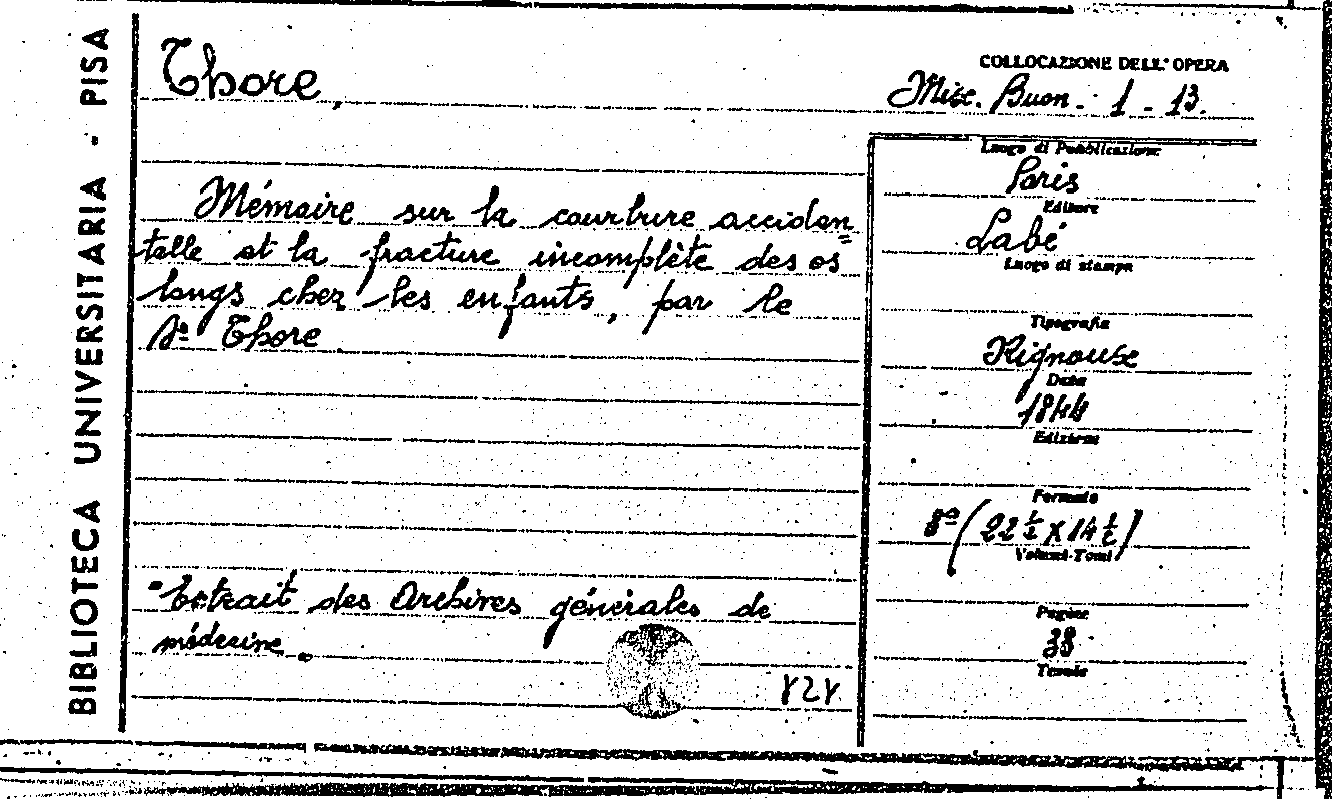 BIBLIOTECA UNIVERSITARIA - PISA
Thore,
COLLOCAZIONE DELL' OPERA
Misc. Buon. 1 - 13.
Mémoire sur la courbure acciden
telle et la fracture incomplète des os
longs chez les enfants, par le
Dr Thore
"Extrait des Archives générales de
médecine.
Luogo di Pubblicazione
Paris
Editore
Labé
Luogo di stampa
Tipografia
Rignouse
Data
1844
Edizione
Formato
8° (22 ½ X 14 ½)
Volumi-Tomi
Pagine
38
Tavole